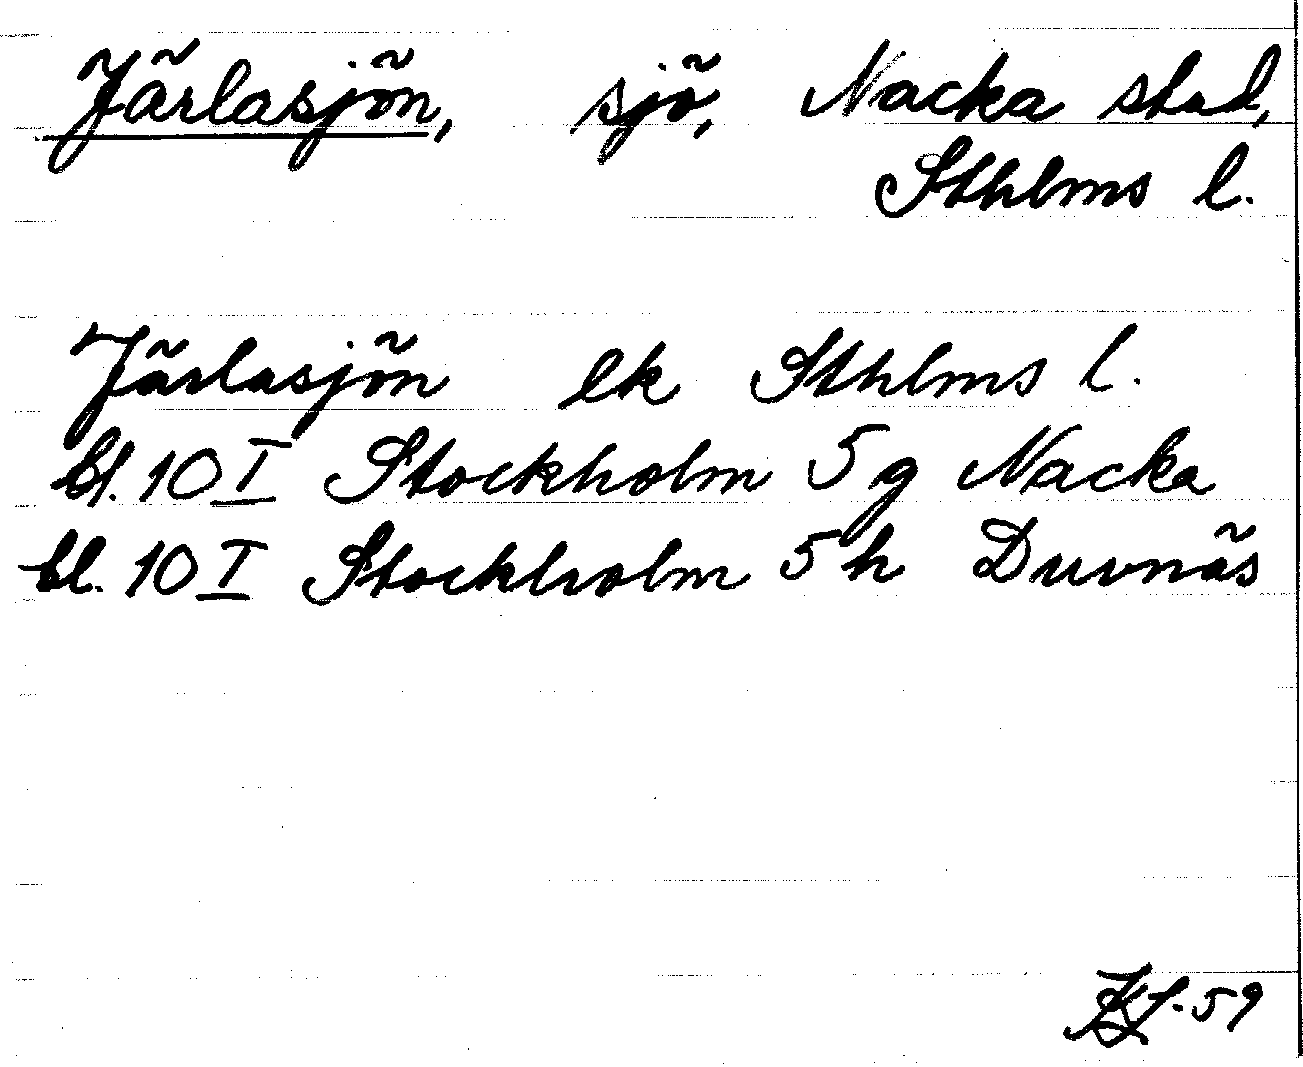 Järlasjön, sjö, Nacka stad,
Sthlms l.
Järlasjön ek Sthlms l.
bl. 10 I Stockholm 5 g Nacka
bl. 10 I Stockholm 5 h Duvnäs
-59